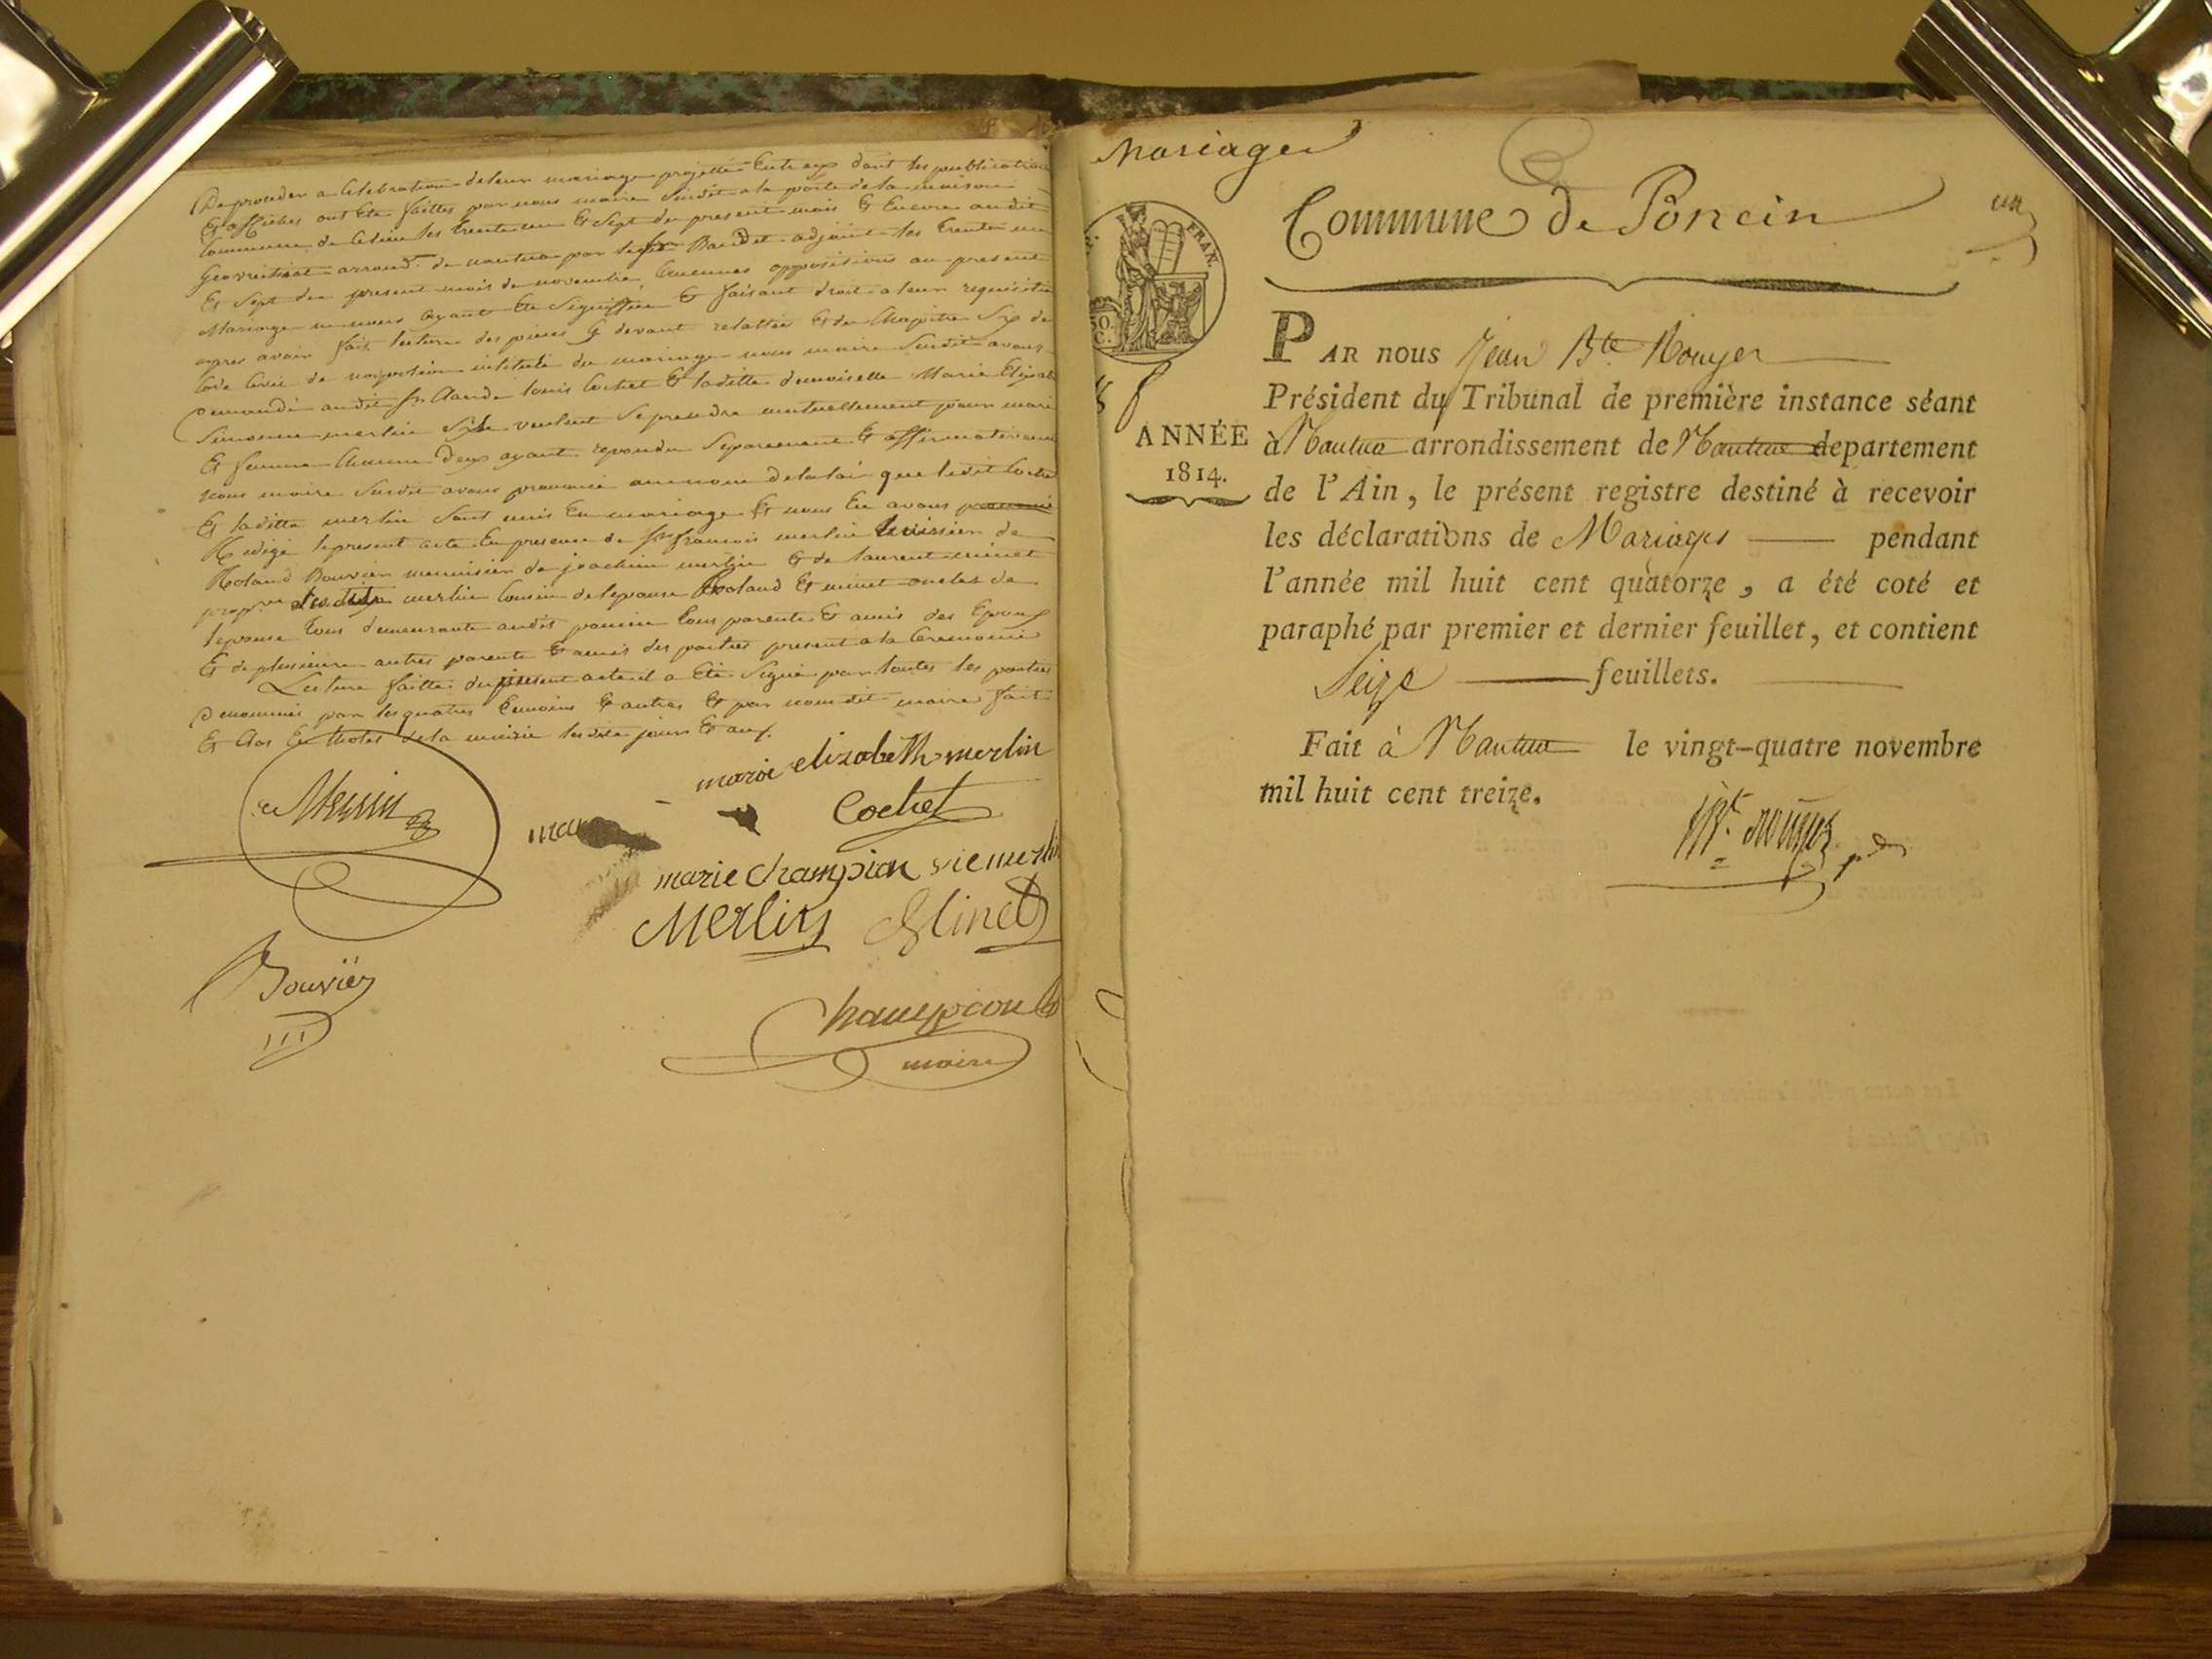 De proceder a Celebration de leur mariage projetté Entre eux dont les publications
Et affiches ont Eté faittes par nous maire Susdit a la porte de la maison
Commune de les trente un Et Sept du present mois Et Encore audit
arrond.t de nantua par le Sr Baudet adjoint les trente un
Et Sept du present mois de novembre, Aucunes oppositions au present
Mariage ne nous ayant Eté Signiffiée Et faisant droit a leur requisition
apres avoir fait lecture des pieces Cy devant relattées Et du Chapitre Six du
Code Civil de napoleon intitulé du mariage nous maire Susdit avons
Demandé audit Sr Claude louis Cochet Et laditte demoiselle Marie Elizabeth
Simonne merlin S'ils veulent Se prendre mutuellement pour mari
Et femme Chacun d'eux ayant repondu Separement Et affirmativement
nous maire Susdit avons prononcé au nom de la loi que ledit Cochet
Et laditte merlin Sont unis En mariage Et nous En avons
Redigé le present acte En presence de Sr francois merlin huissier de
Roland Bouvier menuisier de joachim merlin Et de laurent minet
merlin Cousin de lepouse Roland Et minet oncles de
lepouse tous demeurants audit poncin tous parents Et amis des Epoux
Et de plusieurs autres parents Et amis des parties present a la Ceremonie
Lecture faitte du present acte il a Eté Signé par toutes les parties
Denommés par les quatres temoins Et autres Et par nous dit maire fait
Et Clos En lhotel de la mairie lesdits jours Et an.
marie elizabeth merlin
Cochet
marie champion merlin
Merlin Minet
Bouvier
Champion
maire
Mariages
Commune de Poncin
un
FRAN.
50.
C.
PAR nous Jean Bte Rouyer
Président du Tribunal de première instance séant
à Nantua arrondissement de Nantua departement
ANNÉE
1814.
de l'Ain, le présent registre destiné à recevoir
les déclarations de Mariages pendant
l'année mil huit cent quatorze, a été coté et
paraphé par premier et dernier feuillet, et contient
Seize feuillets.
Fait à Nantua le vingt-quatre novembre
mil huit cent treize.